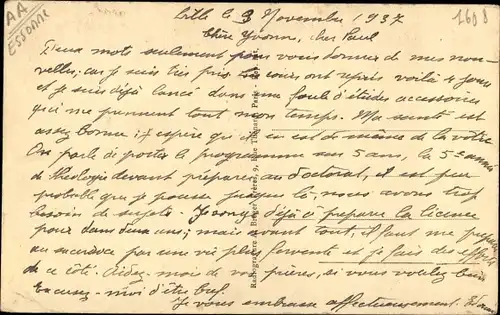 AA
ESSONNE
2608
Lille le 3 Novembre 1937
Chère Yvonne, cher Paul
Deux mots seulement pour vous donner de mes nou-
velles; car je suis très pris les cours ont repris voilà 4 jours
et je suis déjà lancé dans une foule d'études accessoires
qui me prennent tout mon temps. Ma santé est
assez bonne; j'espère qu'il en est de même de la vôtre
On parle de porter le programme sur 5 ans, la 5e année
de théologie devant préparer au doctorat, il est peu
probable que je pousse jusque là, nous avons trop
besoin de sujets. Je songe déjà à préparer la licence
pour dans deux ans; mais avant tout, il faut me préparer
au sacerdoce par une vie plus fervente et je fais des efforts
de ce côté. Aidez-moi de vos prières, si vous voulez bien
Excusez-moi d'être bref
Je vous embrasse affectueusement.
Radiogravure - Breger Frères, 9, Rue Thénard - Paris